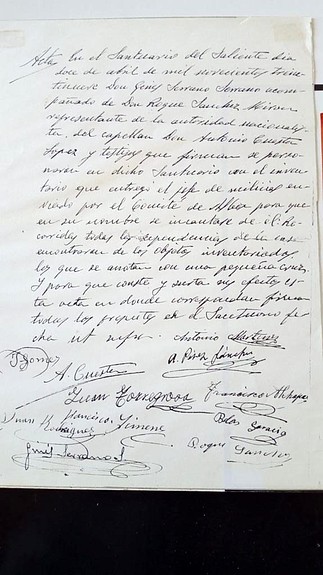 Acta En el Santuario del Saliente dia
doce de abril de mil novecientos trein
tinueve Don Ginés Serrano Serrano acom
pañado de Don Roque Sanchez
representante de la autoridad nacionalis
ta, del capellan Don Antonio Cuesta
Lopez y testigos que firman se perso
naron en dicho Santuario con el inven
tario que entregó el jefe de milicias en
viado por el Comite de Albox para que
en su nombre se incautase de él. Re
corridas todas las dependencias de la casa
encontraron de los objetos inventariados
los que se anotan con una pequeña cruz,
Y para que conste y surta sus efectos es
ta acta en donde corresponda firman
todos los presentes en el Santuario fe
cha ut supra. Antonio Martinez
F. Gomez
A. Perez Sánchez
A. Cuesta
Juan
Francisco
Juan Francisco Jimene
Rodriguez
Blas
Roque Sanchez
Ginés Serrano S.